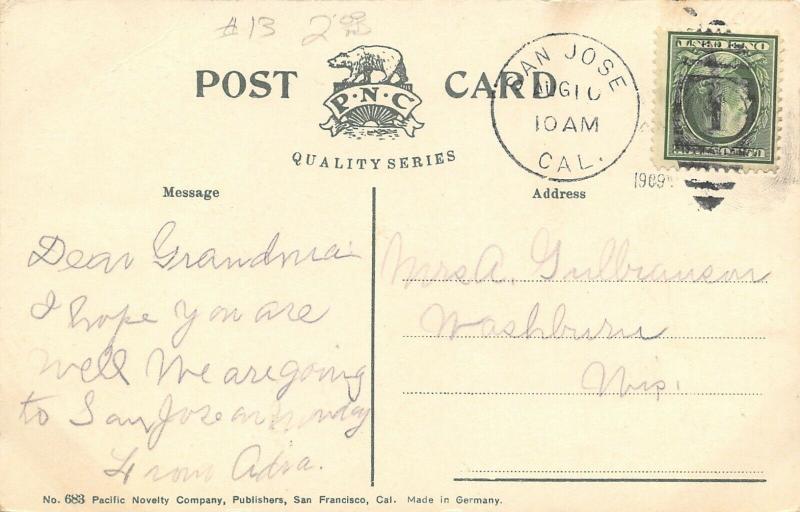 #13 2.00
POST CARD
P·N·C
QUALITY SERIES
SAN JOSE
AUG 10
10 AM
CAL.
1909
Message
Address
Dear Grandma
I hope you are
well We are going
to San Jose on
From
Mrs A. Gulbranson
Washburn
Wis.
No. 683 Pacific Novelty Company, Publishers, San Francisco, Cal. Made in Germany.